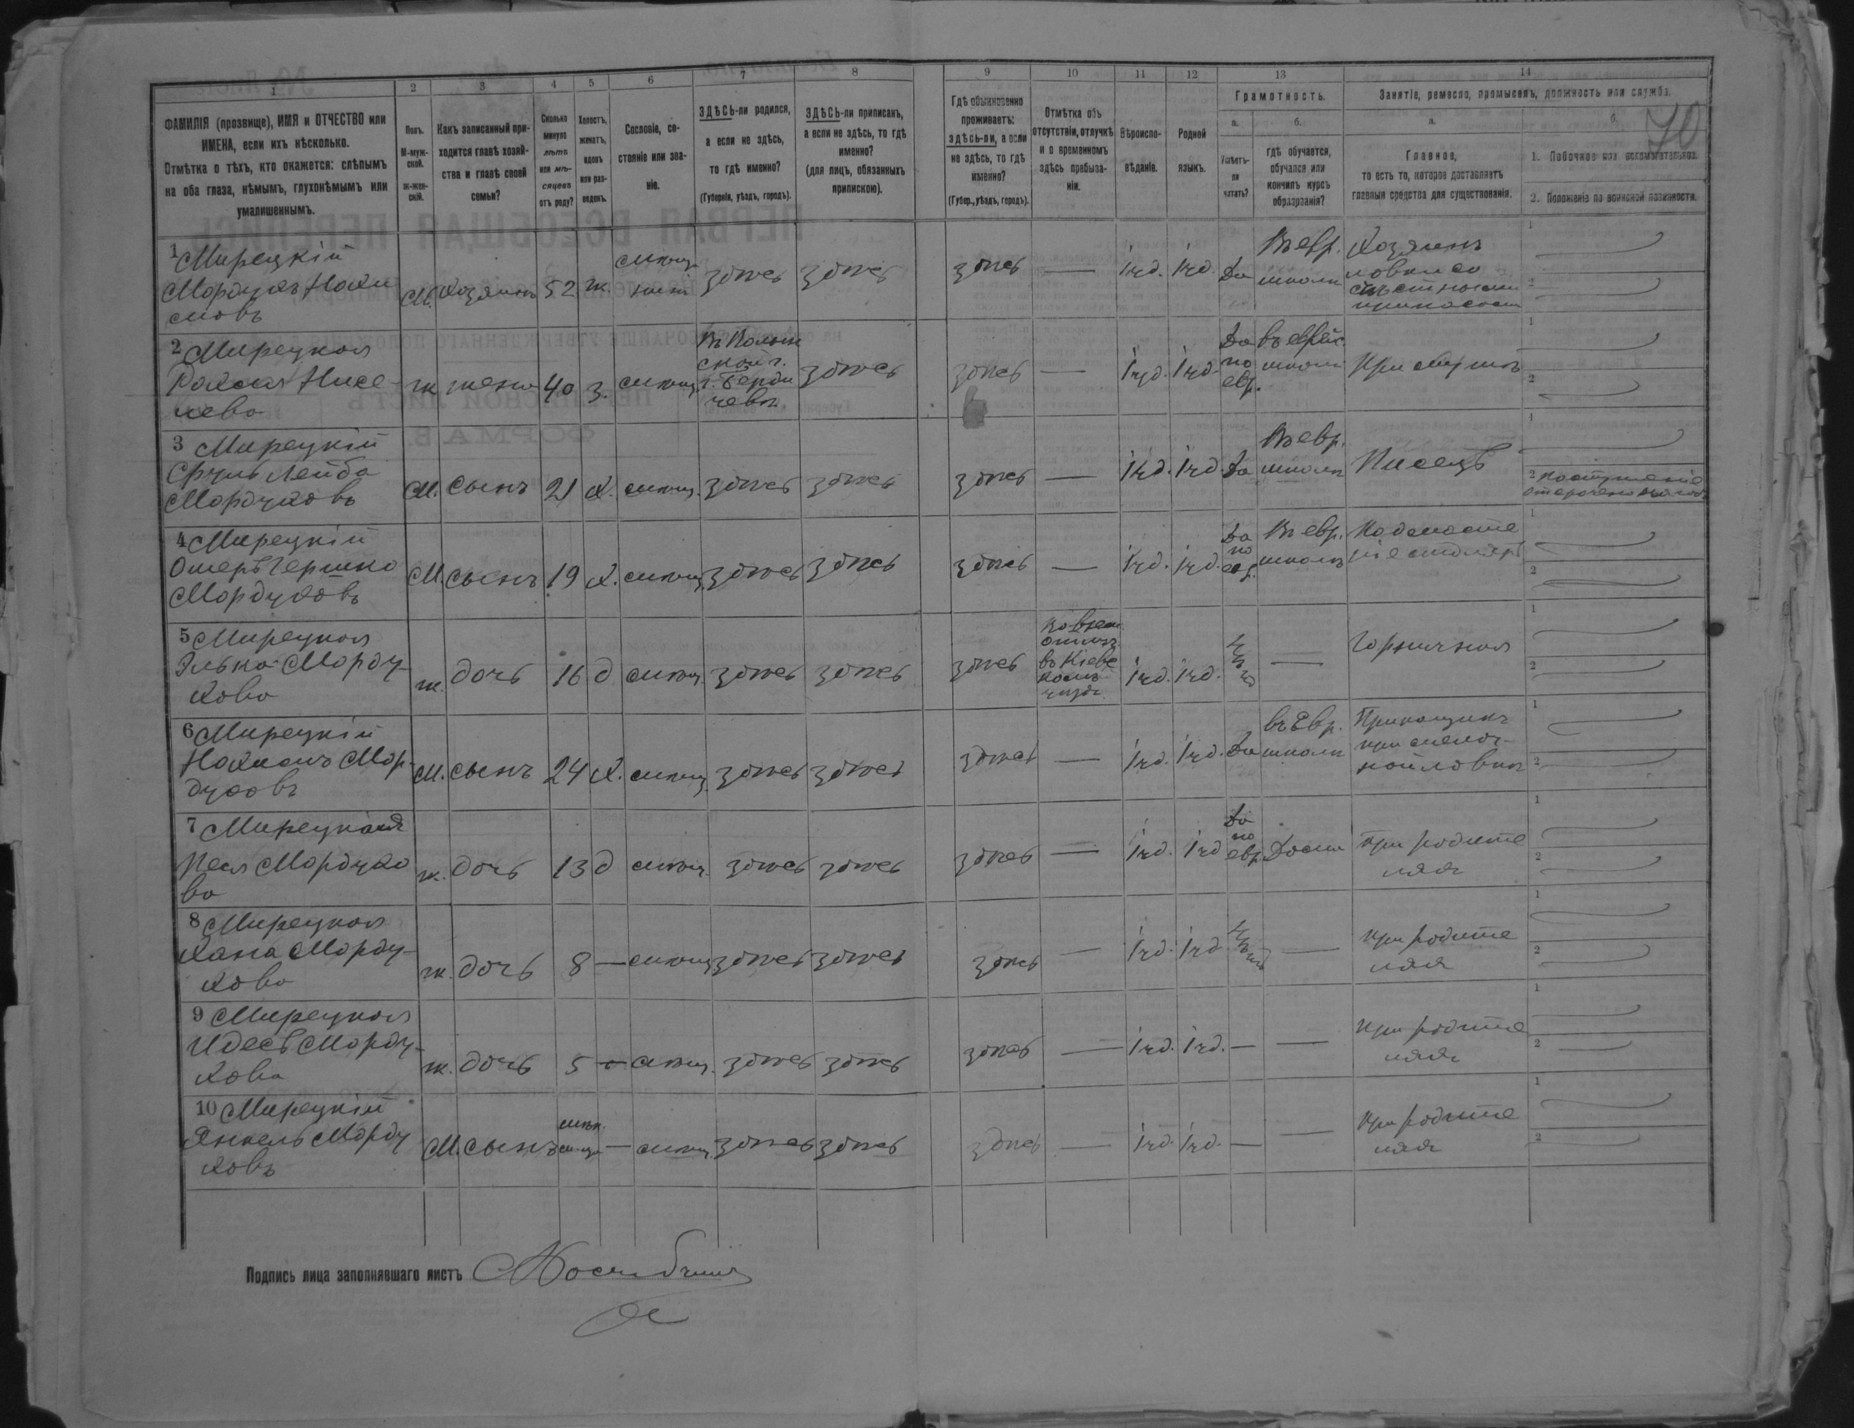 70
1 2 3 4 5 6 7 8 9 10 11 12 13 14
ФАМИЛІЯ (прозвище), ИМЯ и ОТЧЕСТВО или
ИМЕНА, если ихъ нѣсколько.
Отмѣтка о тѣхъ, кто окажется: слѣпымъ
на оба глаза, нѣмымъ, глухонѣмымъ или
умалишеннымъ.
Полъ.
М-муж-
ской.
Ж-жен-
скій.
Какъ записанный при-
ходится главѣ хозяй-
ства и главѣ своей
семьи?
Сколько
минуло
лѣтъ
или мѣ-
сяцевъ
отъ роду?
Холостъ,
женатъ,
вдовъ
или раз-
веденъ.
Сословіе, со-
стояніе или зва-
ніе.
ЗДѢСЬ-ли родился,
а если не здѣсь,
то гдѣ именно?
(Губернія, уѣздъ, городъ).
ЗДѢСЬ-ли приписанъ,
а если не здѣсь, то гдѣ
именно?
(для лицъ, обязанныхъ
припискою).
Гдѣ обыкновенно
проживаетъ:
здѣсь-ли, а если
не здѣсь, то гдѣ
именно?
(Губер., уѣздъ, городъ).
Отмѣтка объ
отсутствіи, отлучкѣ
и о временномъ
здѣсь пребыва-
ніи.
Вѣроиспо-
вѣданіе.
Родной
языкъ.
Грамотность.
а.
Умѣетъ-
ли
читать?
б.
гдѣ обучается,
обучался или
кончилъ курсъ
образованія?
Занятіе, ремесло, промыселъ, должность или служба.
а.
Главное,
то есть то, которое доставляетъ
главныя средства для существованія.
б.
1. Побочное или вспомогательное.
2. Положеніе по воинской повинности.
1 Мирецкій
Мордухъ Нахи
мовъ
М. Хозяинъ 52 ж. мѣщ. здѣсь здѣсь здѣсь — Іуд. Іуд. Да
Въ евр.
школѣ
Хозяинъ
лавки со
съѣстными
припасами
2 Мирецкая
ж жена 40 з. мѣщ.
г. Берди
чевъ
здѣсь здѣсь — Іуд. Іуд.
Да
по
евр.
въ еврейс.
школѣ
При мужѣ
3 Мирецкій
Сруль Лейба
Мордуховъ
М. сынъ 21 х. мѣщ. здѣсь здѣсь здѣсь — Іуд. Іуд. Да
Въ евр.
школѣ
Писецъ
4 Мирецкій
Гершко
Мордуховъ
М. сынъ 19 х. мѣщ. здѣсь здѣсь здѣсь — Іуд. Іуд.
Да
по
евр.
Въ евр.
школѣ
5 Мирецкая
Морду-
хова
ж. дочь 16 д мѣщ. здѣсь здѣсь здѣсь
въ Кіевѣ
Іуд. Іуд. —
Горничная
6 Мирецкій
Нахманъ Мор-
духовъ
М. сынъ 24 х. мѣщ. здѣсь здѣсь здѣсь — Іуд. Іуд. Да
въ Евр.
школѣ
Прикащикъ
при мелоч-
ной лавкѣ
7 Мирецкая
Песя Мордухо
ва
ж. дочь 13 д мѣщ. здѣсь здѣсь здѣсь — Іуд. Іуд
Да
по
евр.
Дома
При родите
ляхъ
8 Мирецкая
Хана Морду-
хова
ж. дочь 8 — мѣщ. здѣсь здѣсь здѣсь — Іуд. Іуд. —
При родите
ляхъ
9 Мирецкая
Идесь Морду-
хова
ж. дочь 5 — мѣщ. здѣсь здѣсь здѣсь — Іуд. Іуд. — —
При родите
ляхъ
10 Мирецкій
Янкель Морду
ховъ
М. сынъ — мѣщ. здѣсь здѣсь здѣсь — Іуд. Іуд. — —
При родите
ляхъ
Подпись лица заполнявшаго листъ